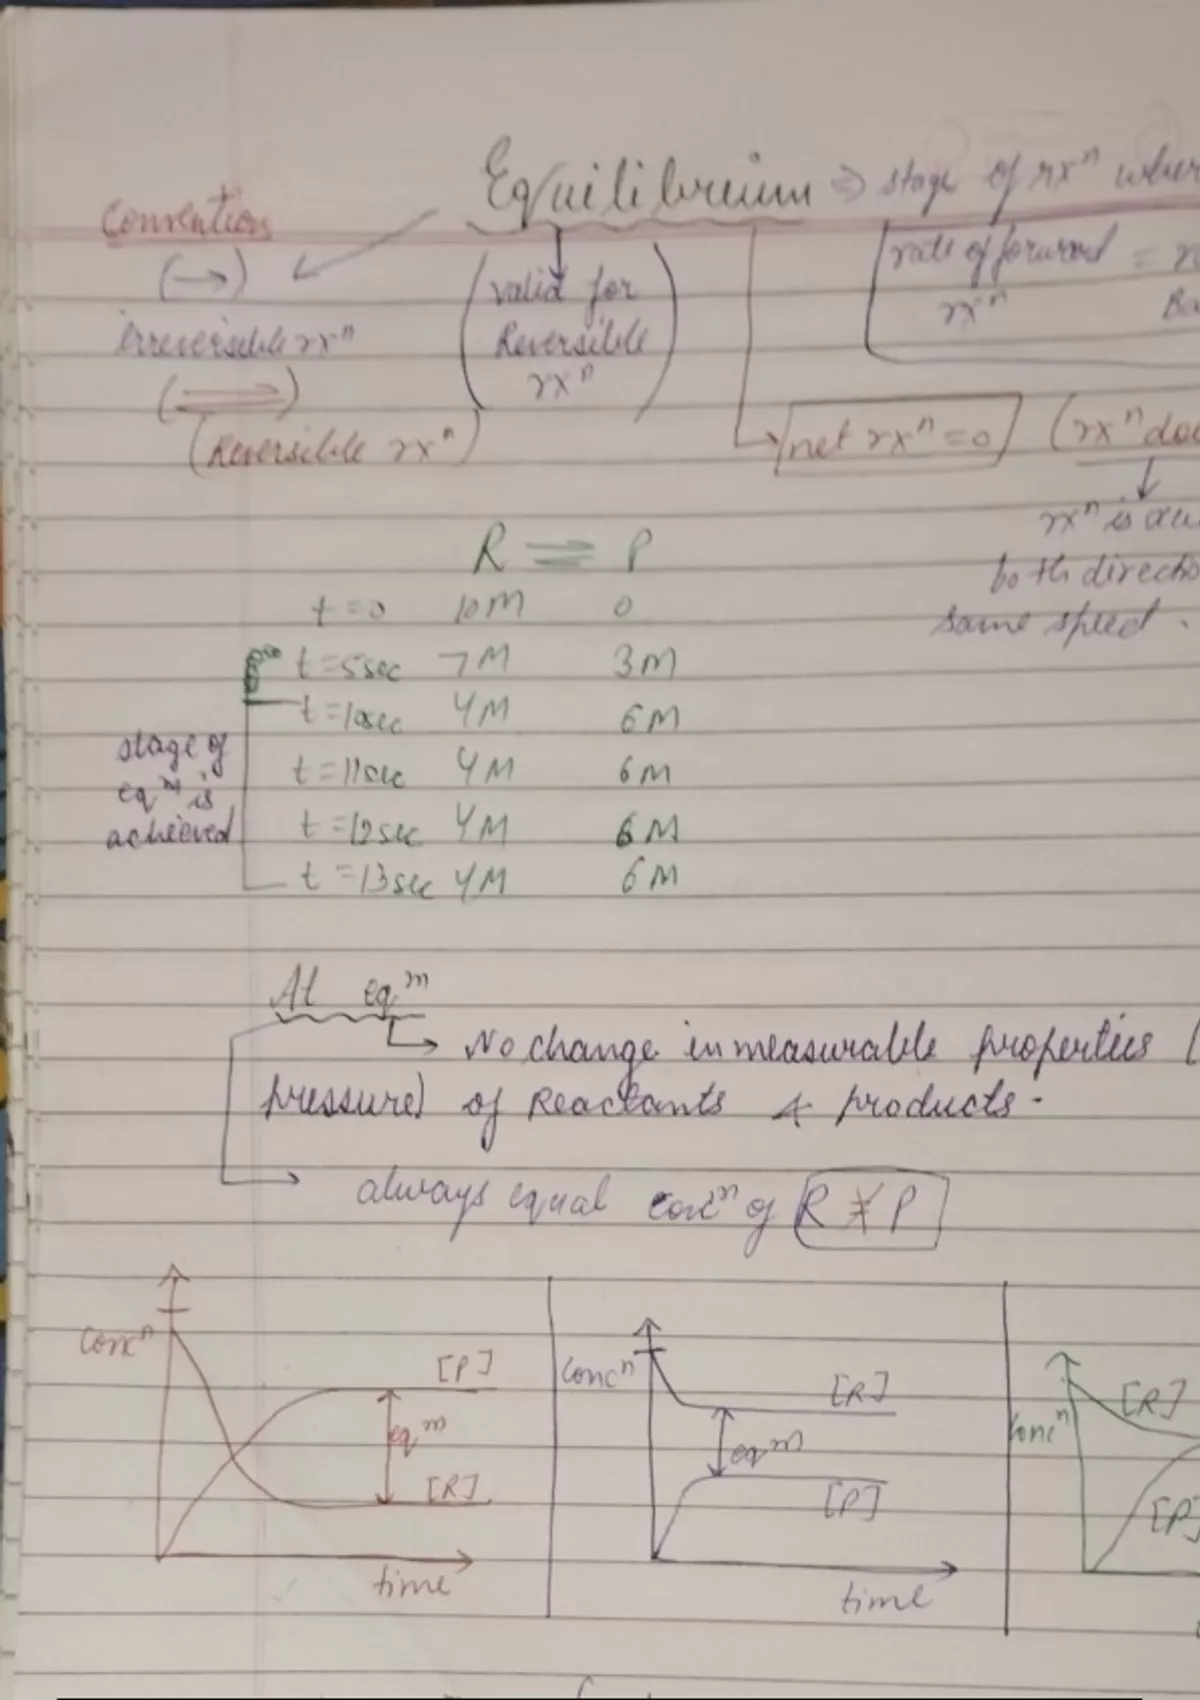 Equilibrium ⇒ stage of rxⁿ wher
Convention
(→)
irreversible rxⁿ
(⇌)
(Reversible rxⁿ)
(valid for
Reversible
rxⁿ)
rate of forward =
rxⁿ Ba
net rxⁿ = 0 (rxⁿ doe
rxⁿ is
both directio
same speed.
R ⇌ P
t=0 10M 0
t=5sec 7M 3M
t=10sec 4M 6M
t=11sec 4M 6M
t=12sec 4M 6M
t=13sec 4M 6M
stage of
eqᵐ is
achieved
At eqᵐ
→ No change in measurable properties (
pressure) of Reactants & products.
→ always equal concⁿ of R P
concⁿ
[P]
eqᵐ
[R]
time
concⁿ
[R]
eqᵐ
[P]
time
concⁿ
[R]
[P]